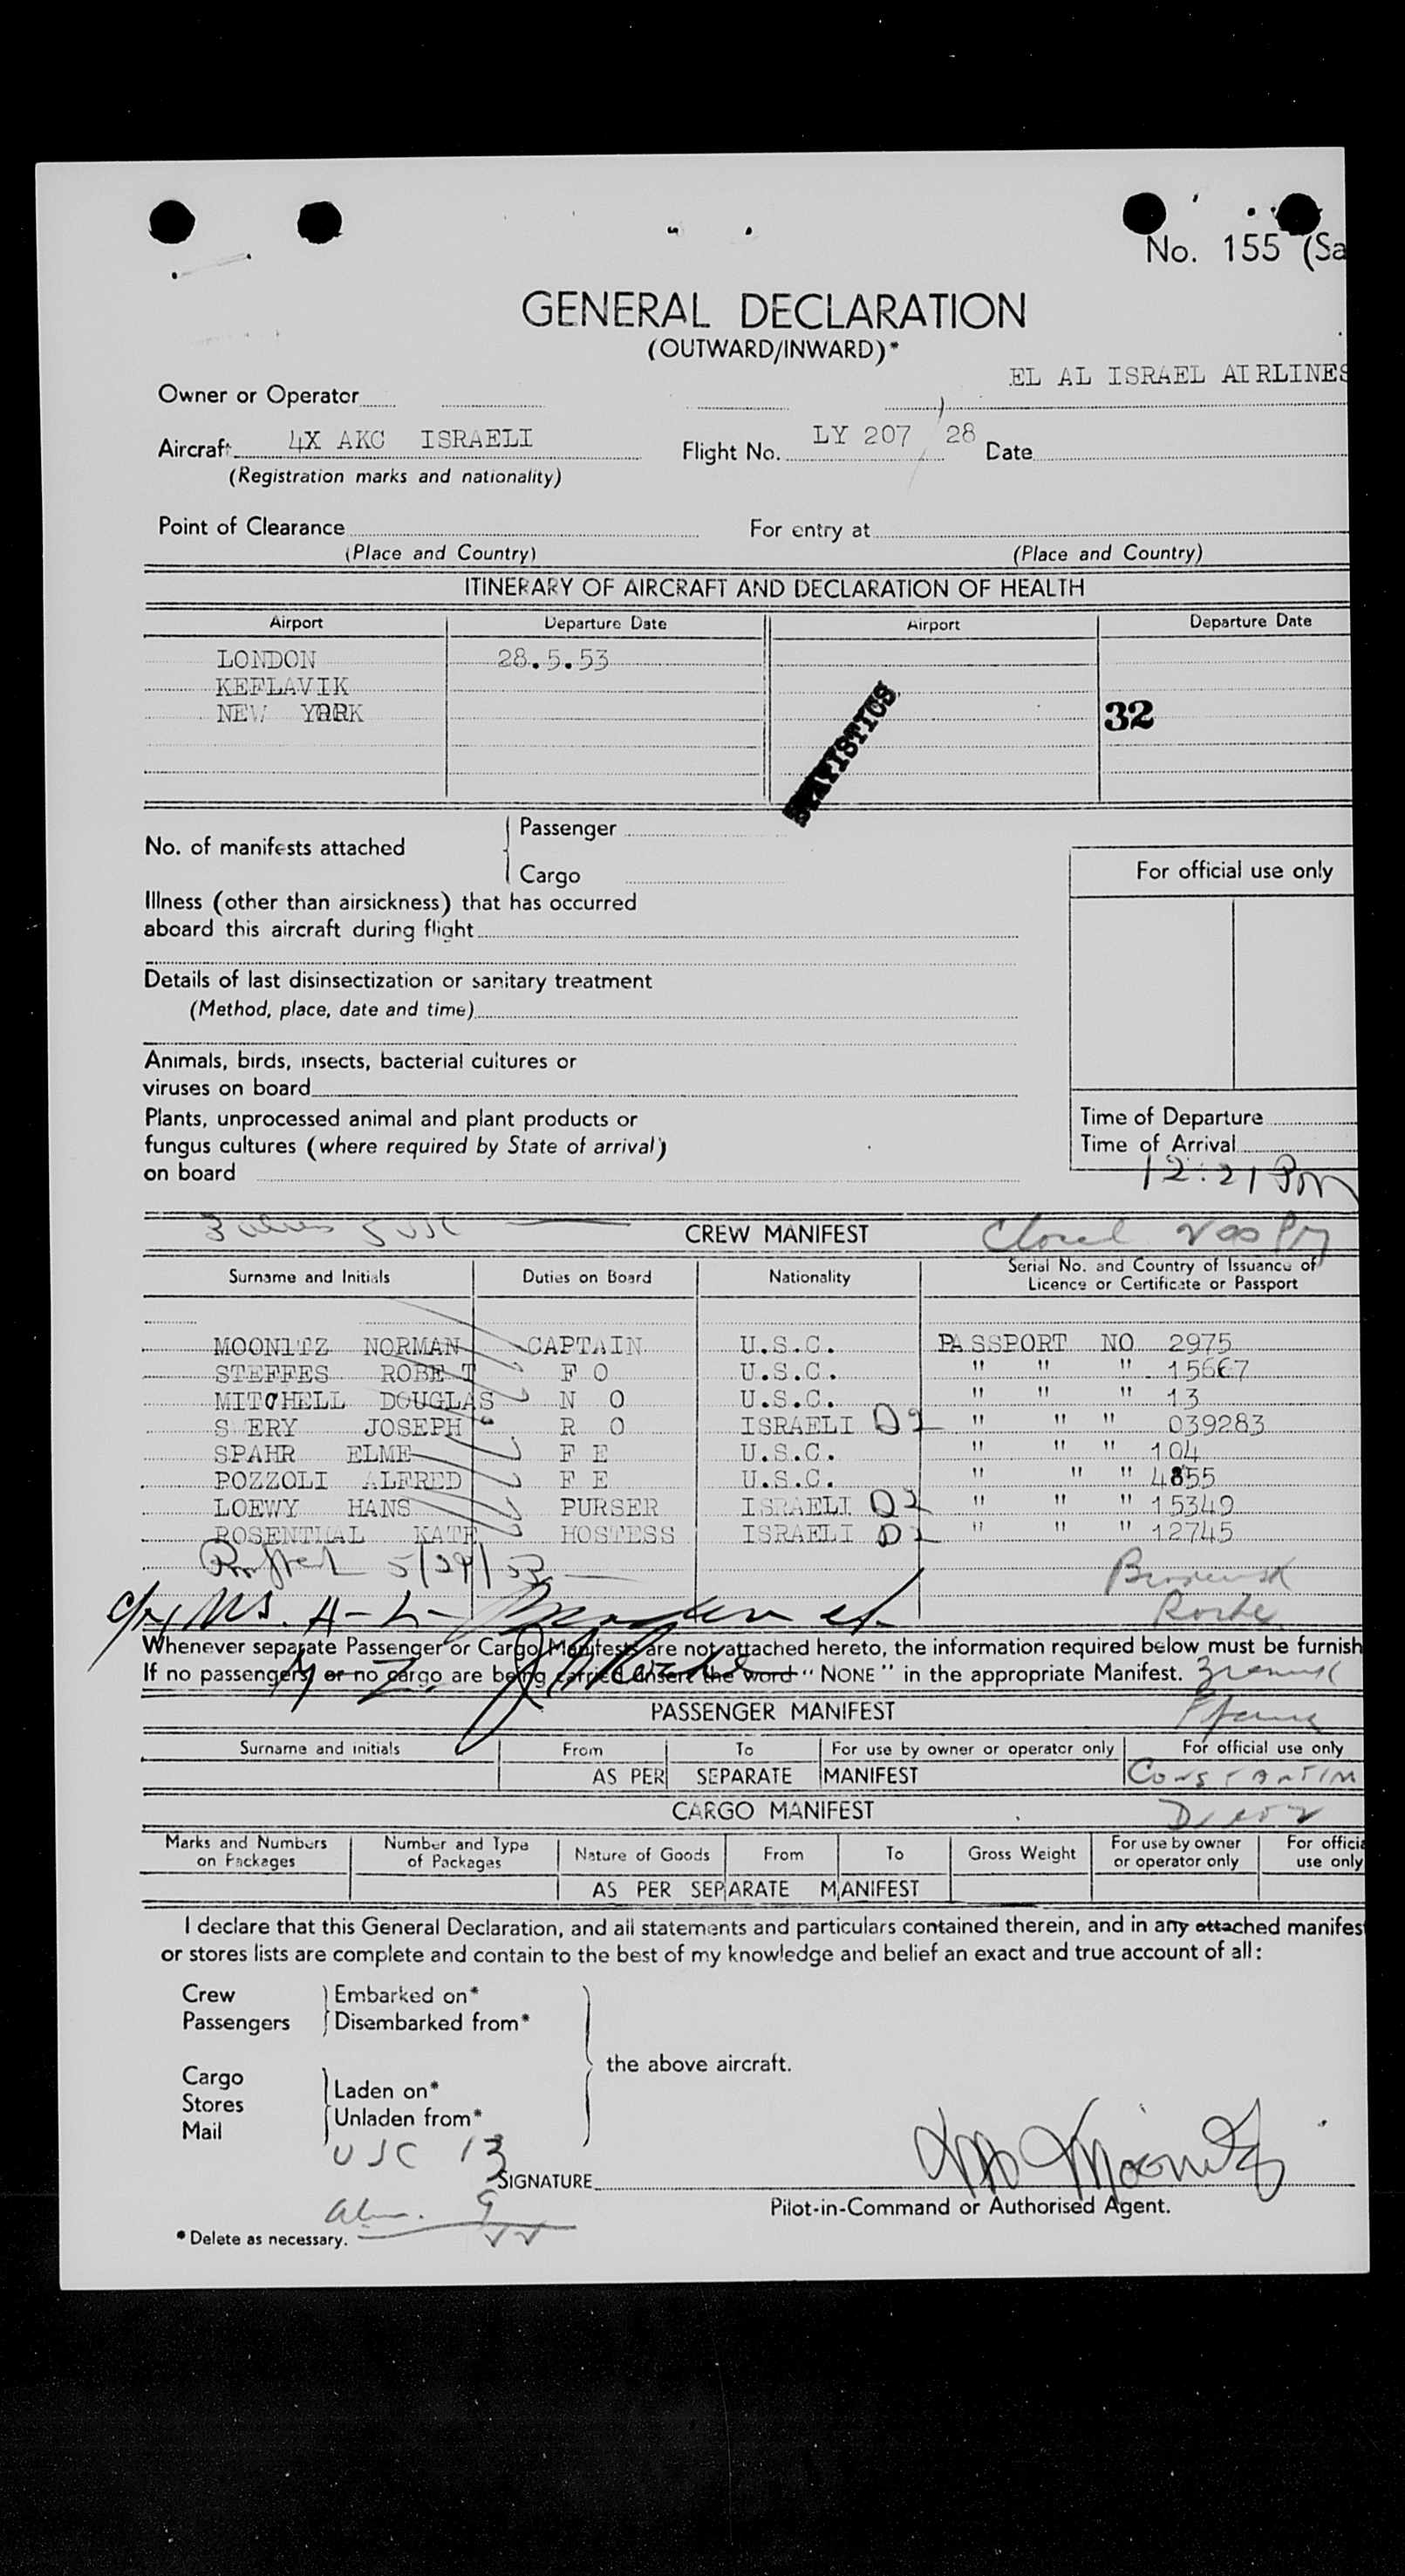 No. 155 (Sa
GENERAL DECLARATION
(OUTWARD/INWARD)*
EL AL ISRAEL AIRLINES
Owner or Operator
Aircraft 4X AKC ISRAELI Flight No. LY 207 / 28 Date
(Registration marks and nationality)
Point of Clearance For entry at
(Place and Country) (Place and Country)
ITINERARY OF AIRCRAFT AND DECLARATION OF HEALTH
Airport Departure Date Airport Departure Date
LONDON 28.5.53
KEFLAVIK
NEW YORK 32
STATISTICS
No. of manifests attached
Passenger
Cargo
For official use only
Illness (other than airsickness) that has occurred
aboard this aircraft during flight
Details of last disinsectization or sanitary treatment
(Method, place, date and time)
Animals, birds, insects, bacterial cultures or
viruses on board
Plants, unprocessed animal and plant products or
fungus cultures (where required by State of arrival)
on board
Time of Departure
Time of Arrival
12:21 PM
CREW MANIFEST
Surname and Initials Duties on Board Nationality Serial No. and Country of Issuance of Licence or Certificate or Passport
MOONITZ NORMAN CAPTAIN U.S.C. PASSPORT NO 2975
STEFFES ROBE T F O U.S.C. " " " 15667
MITCHELL DOUGLAS N O U.S.C. " " " 13
S ERY JOSEPH R O ISRAELI D2 " " " 039283
SPAHR ELME F E U.S.C. " " " 104
POZZOLI ALFRED F E U.S.C. " " " 4855
LOEWY HANS PURSER ISRAELI D2 " " " 15349
ROSENTHAL KATE HOSTESS ISRAELI D2 " " " 12745
5/29/53
Whenever separate Passenger or Cargo Manifests are not attached hereto, the information required below must be furnish
If no passengers or no cargo are being carried insert the word "NONE" in the appropriate Manifest.
PASSENGER MANIFEST
Surname and initials From To For use by owner or operator only For official use only
AS PER SEPARATE MANIFEST CONSTANTIN
CARGO MANIFEST
Marks and Numbers on Packages Number and Type of Packages Nature of Goods From To Gross Weight For use by owner or operator only For officia use only
AS PER SEPARATE MANIFEST
I declare that this General Declaration, and all statements and particulars contained therein, and in any attached manifes
or stores lists are complete and contain to the best of my knowledge and belief an exact and true account of all:
Crew
Passengers
Embarked on*
Disembarked from*
the above aircraft.
Cargo
Stores
Mail
Laden on*
Unladen from*
USC 13
SIGNATURE
Pilot-in-Command or Authorised Agent.
* Delete as necessary.